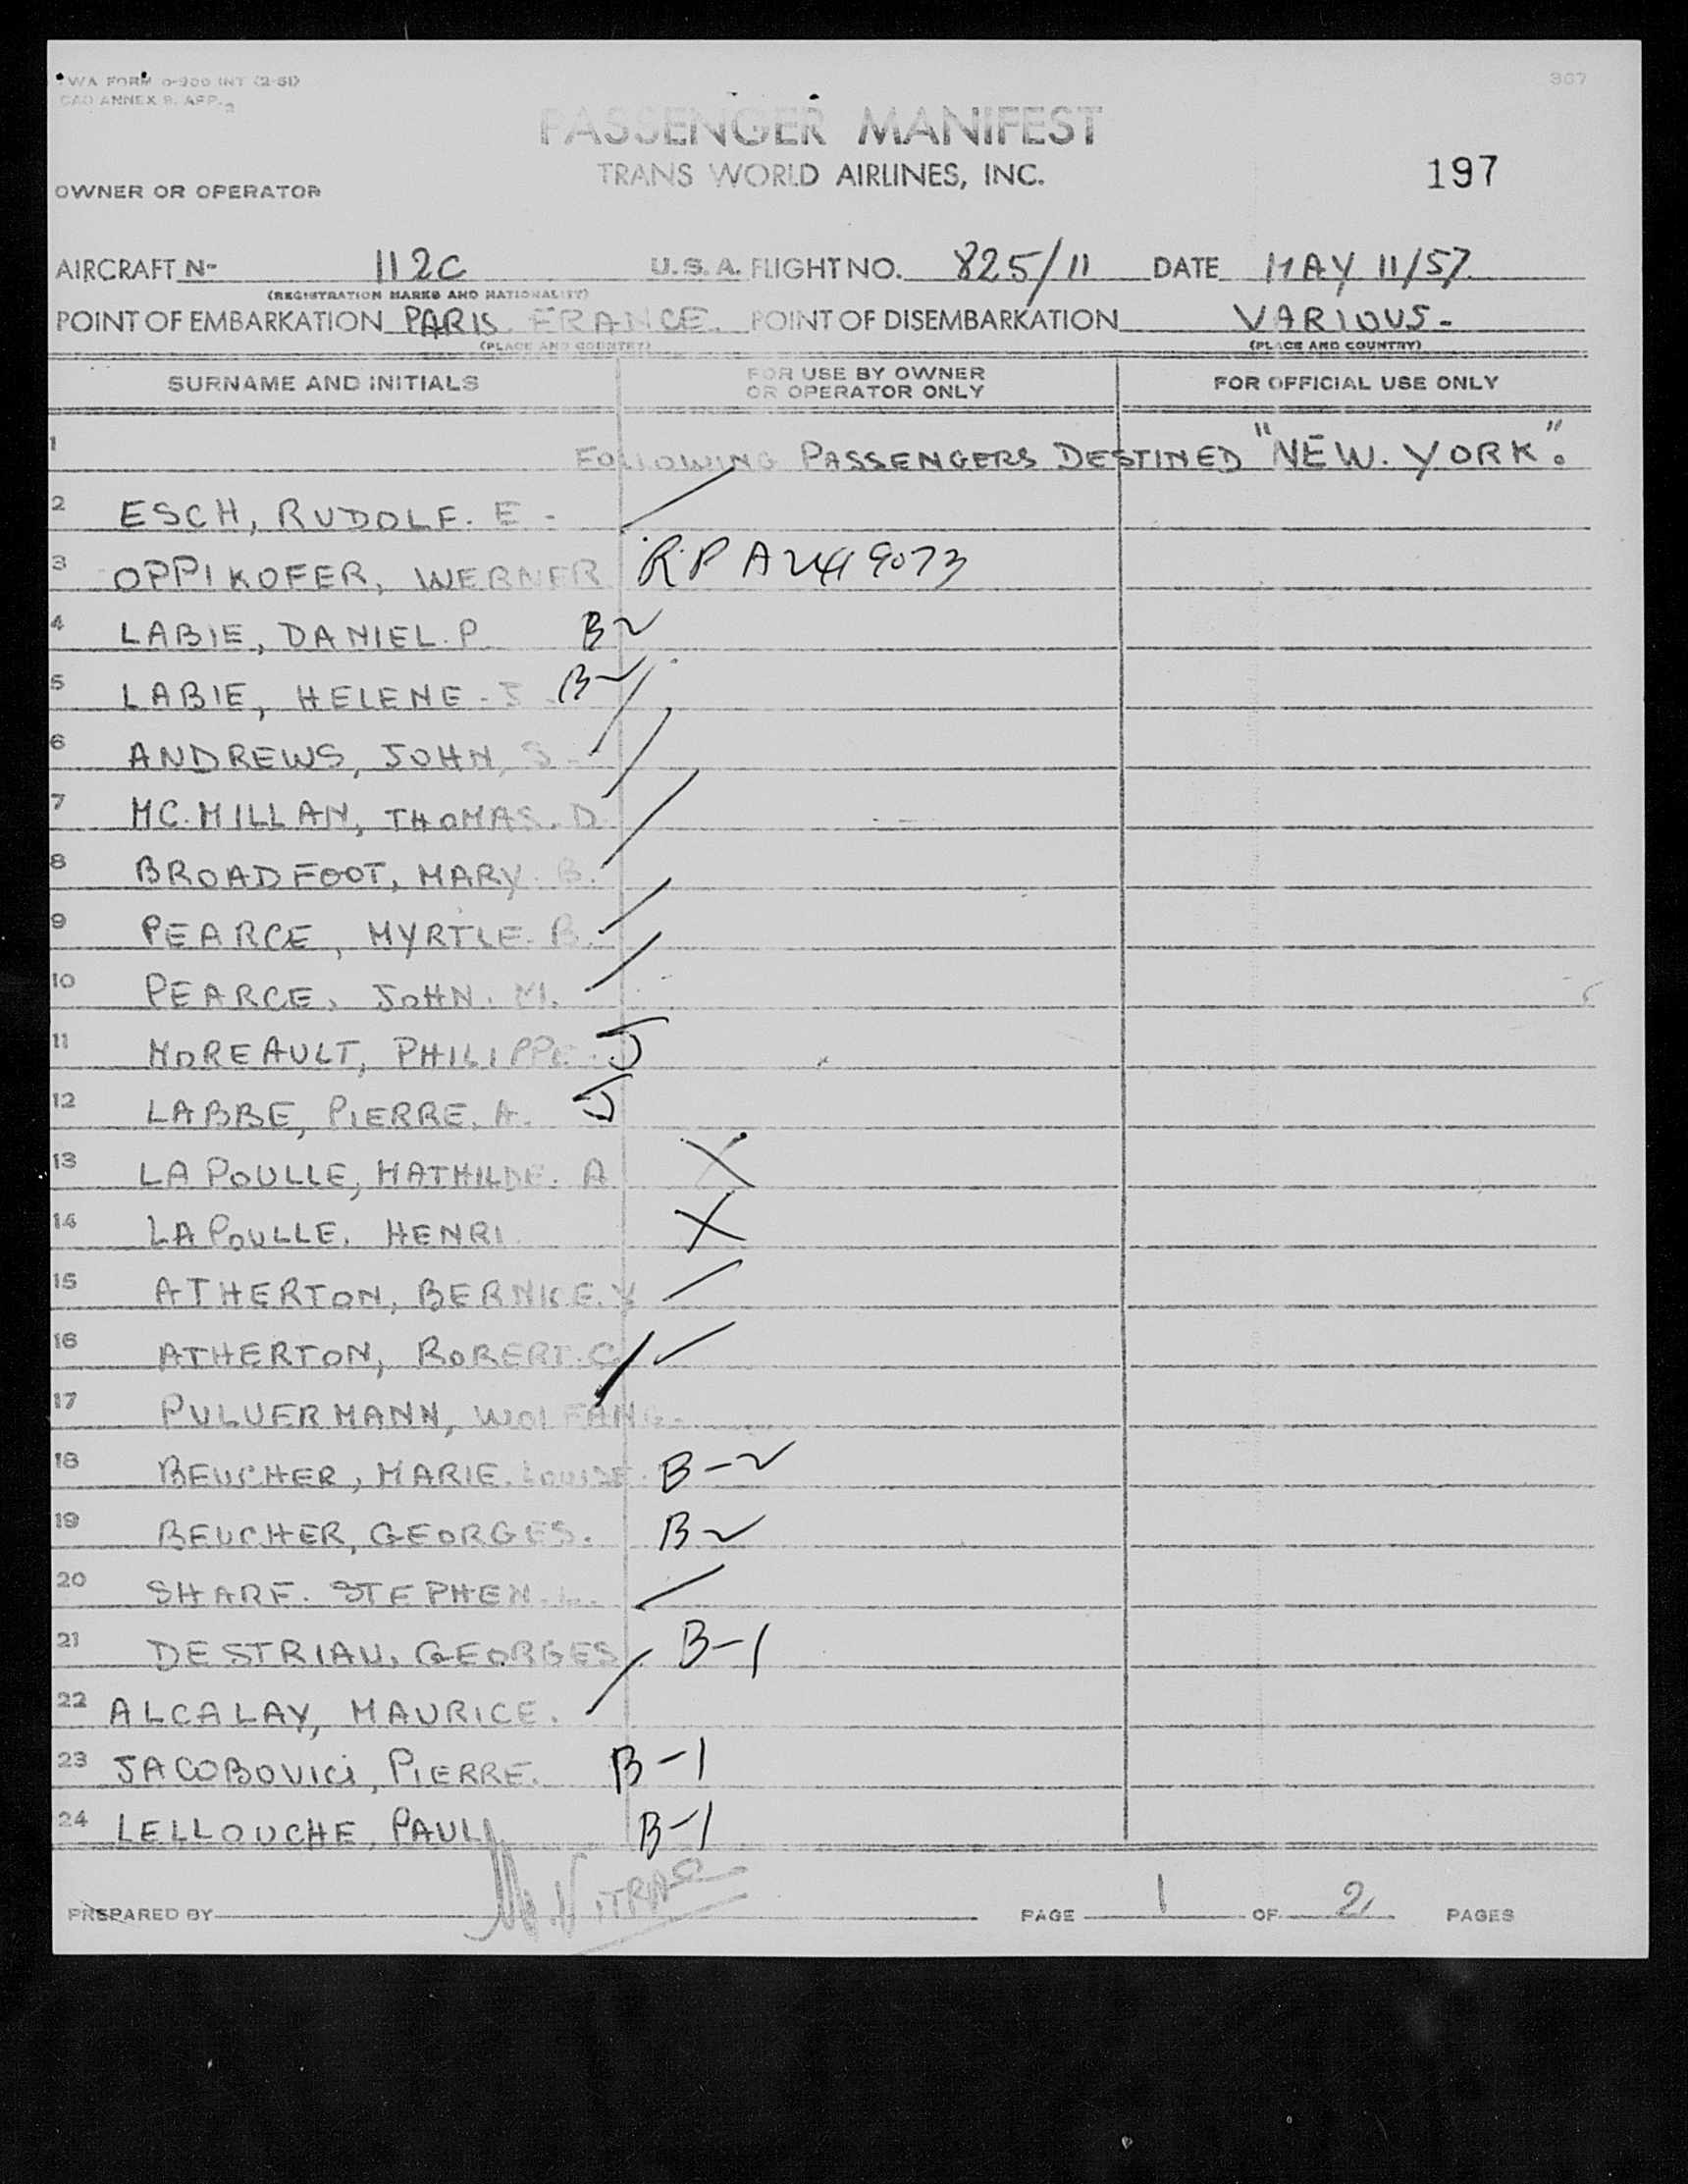 TWA FORM 0-900 INT (2-51)
ICAO ANNEX 9, APP. 2
367
PASSENGER MANIFEST
TRANS WORLD AIRLINES, INC.
197
OWNER OR OPERATOR
AIRCRAFT N- 112C U.S.A. FLIGHT NO. 825/11 DATE MAY 11/57.
(REGISTRATION MARKS AND NATIONALITY)
POINT OF EMBARKATION PARIS FRANCE. POINT OF DISEMBARKATION VARIOUS-
(PLACE AND COUNTRY) (PLACE AND COUNTRY)
SURNAME AND INITIALS FOR USE BY OWNER OR OPERATOR ONLY FOR OFFICIAL USE ONLY
1 FOLLOWING PASSENGERS DESTINED "NEW. YORK".
2 ESCH, RUDOLF. E -
3 OPPIKOFER, WERNER RP A2419073
4 LABIE, DANIEL. P. B2
5 LABIE, HELENE - J. B2
6 ANDREWS, JOHN, S -
7 MC.MILLAN, THOMAS. D.
8 BROADFOOT, MARY. B.
9 PEARCE, MYRTLE. B.
10 PEARCE, JOHN. M.
11 MOREAULT, PHILIPPE. J
12 LABBE, PIERRE. A. J
13 LA POULLE, MATHILDE. A X
14 LAPOULLE, HENRI. X
15 ATHERTON, BERNICE. Y
16 ATHERTON, ROBERT. C.
17 PULVERMANN, WOLFANG.
18 BEUCHER, MARIE. LOUISE. B-2
19 BEUCHER, GEORGES. B2
20 SHARF. STEPHEN. L.
21 DESTRIAU, GEORGES. B-1
22 ALCALAY, MAURICE.
23 JACOBOVICI, PIERRE. B-1
24 LELLOUCHE, PAUL B-1
PREPARED BY M. VITRAC PAGE 1 OF 2 PAGES